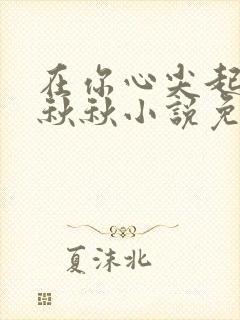 在你心尖起
秋秋小說免
夏沫北